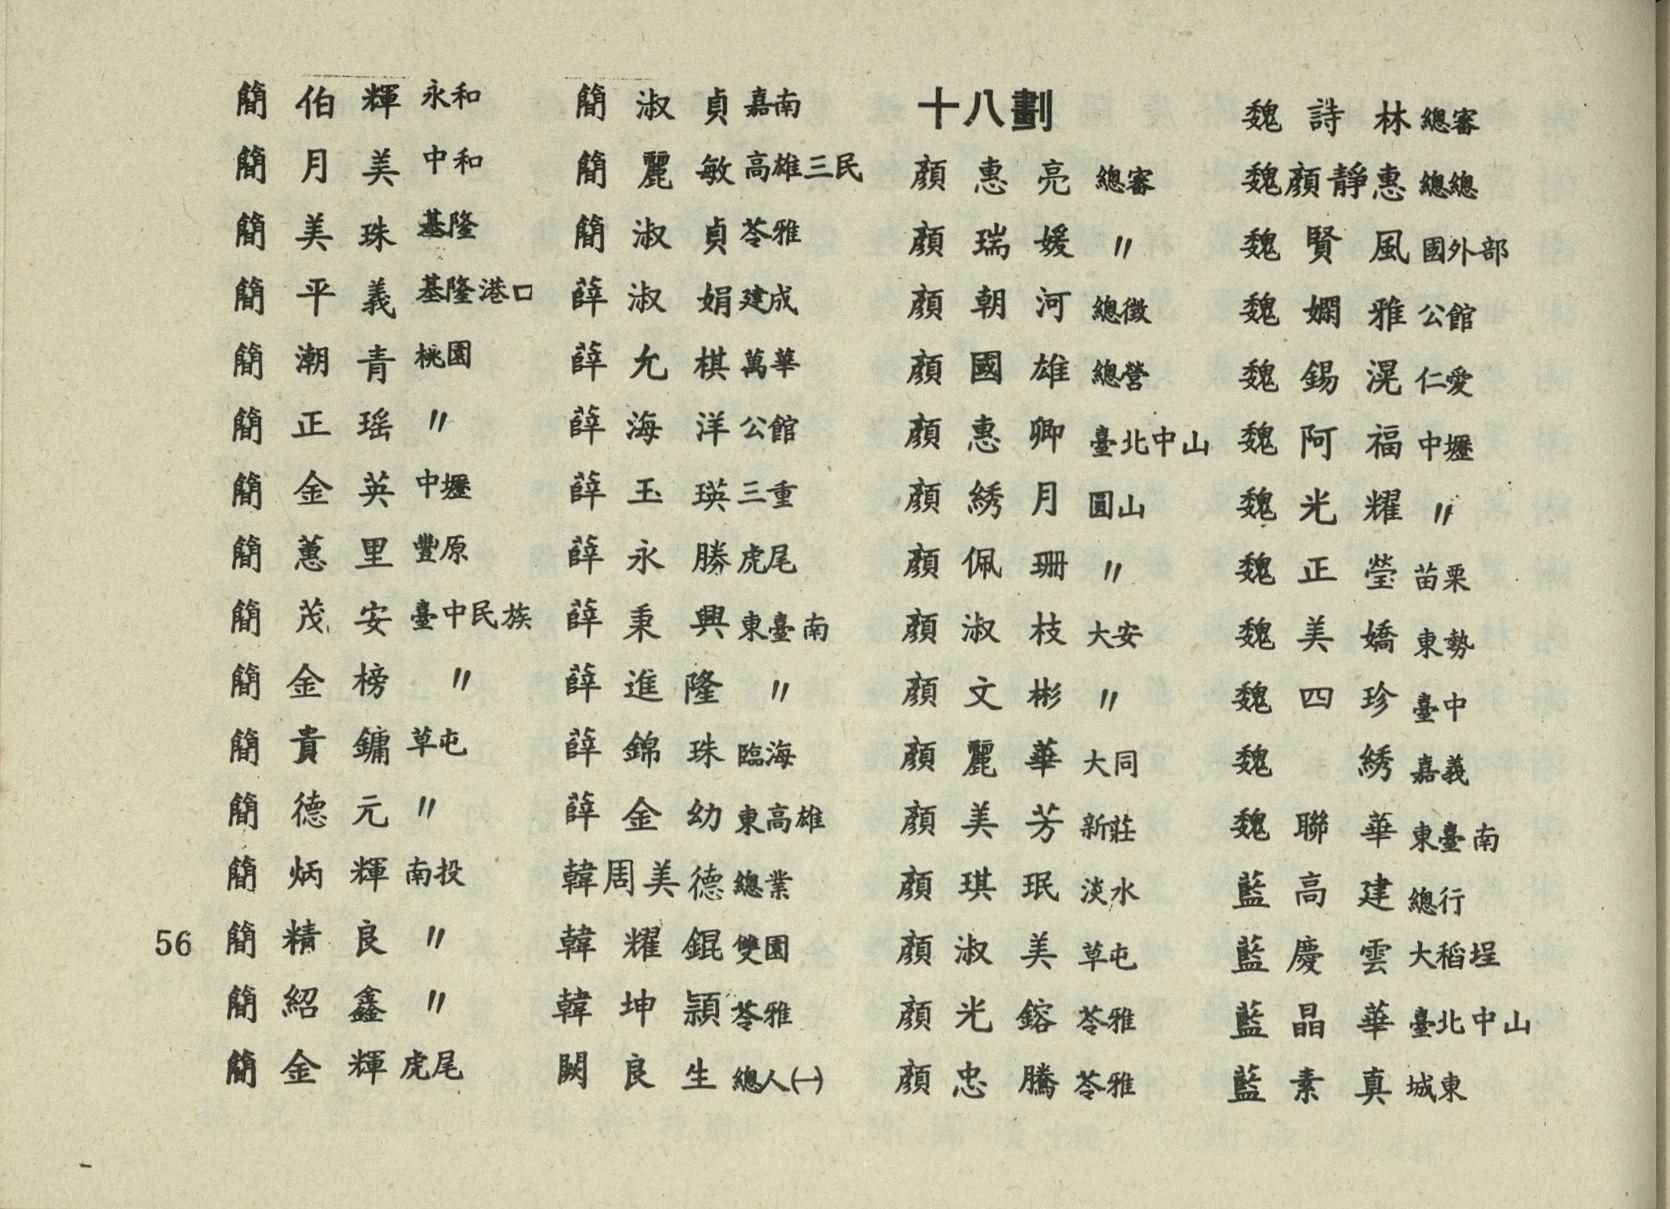 簡伯輝 永和
簡月美 中和
簡美珠 基隆
簡平義 基隆港口
簡潮青 桃園
簡正瑶 〃
簡金英 中壢
簡蕙里 豐原
簡茂安 臺中民族
簡金榜 〃
簡貴鏞 草屯
簡德元 〃
簡炳輝 南投
簡精良 〃
簡紹鑫 〃
簡金輝 虎尾
簡淑貞 嘉南
簡麗敏 高雄三民
簡淑貞 苓雅
薛淑娟 建成
薛允棋 萬華
薛海洋 公館
薛玉瑛 三重
薛永勝 虎尾
薛秉興 東臺南
薛進隆 〃
薛錦珠 臨海
薛金幼 東高雄
韓周美德 總業
韓耀錕 雙園
韓坤頴 苓雅
闕良生 總人(一)
十八劃
顏惠亮 總審
顏瑞媛 〃
顏朝河 總徵
顏國雄 總營
顏惠卿 臺北中山
顏綉月 圓山
顏佩珊 〃
顏淑枝 大安
顏文彬 〃
顏麗華 大同
顏美芳 新莊
顏琪珉 淡水
顏淑美 草屯
顏光鎔 苓雅
顏忠騰 苓雅
魏詩林 總審
魏顏靜惠 總總
魏賢風 國外部
魏嫻雅 公館
魏錫滉 仁愛
魏阿福 中壢
魏光耀 〃
魏正瑩 苗栗
魏美嬌 東勢
魏四珍 臺中
魏綉 嘉義
魏聯華 東臺南
藍高建 總行
藍慶雲 大稻埕
藍晶華 臺北中山
藍素真 城東
56